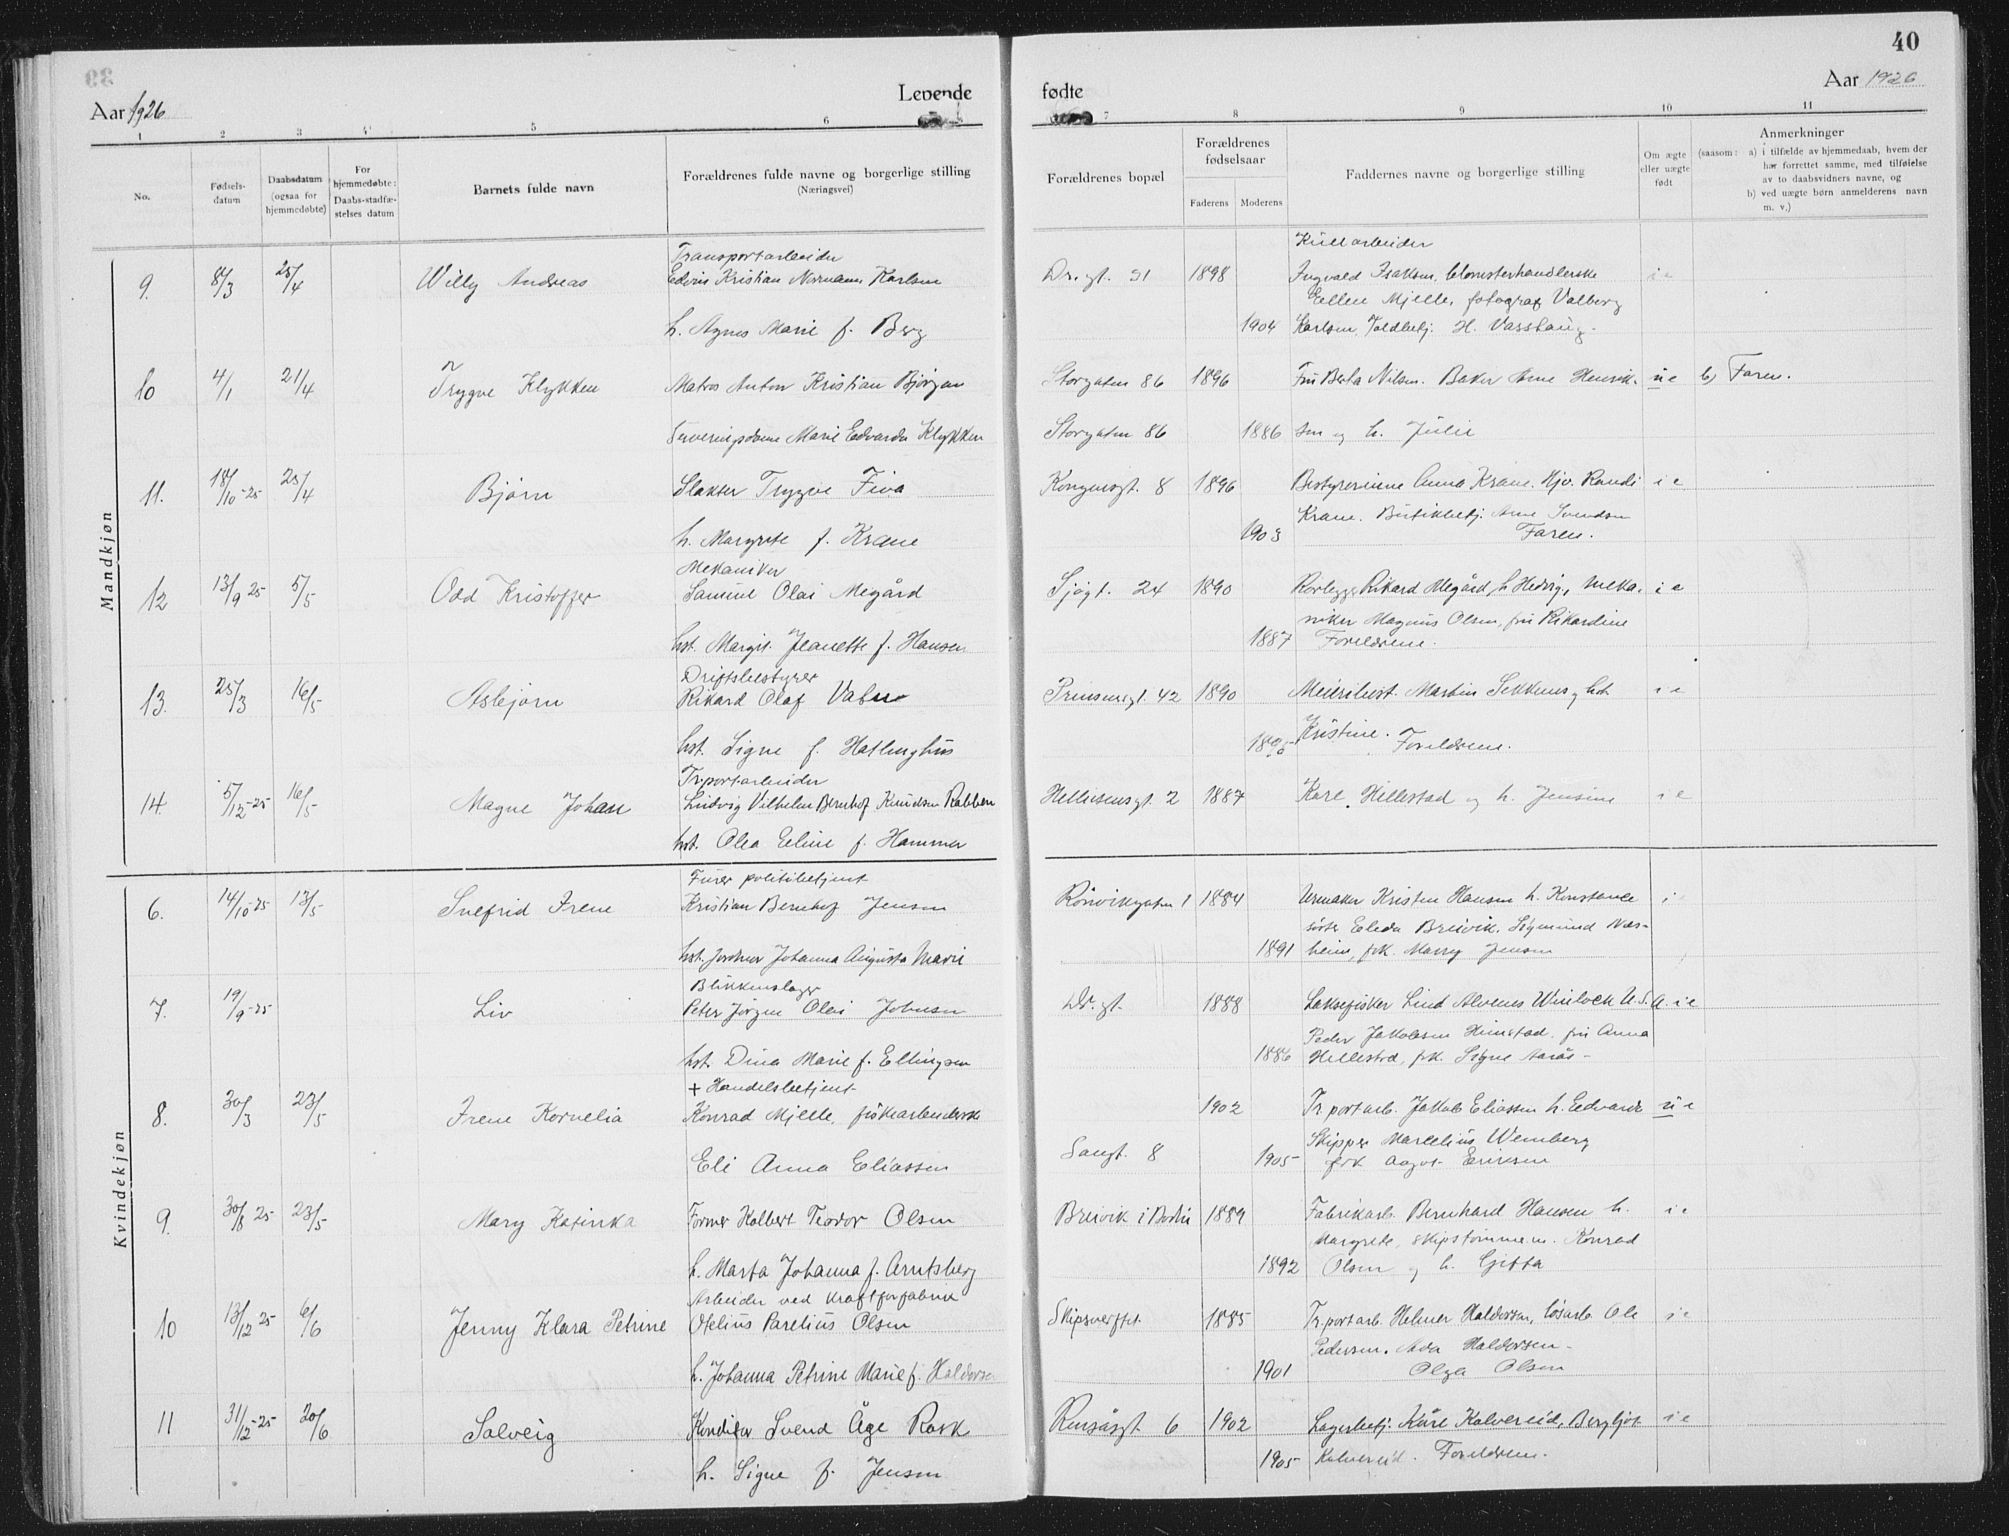 40
Aar 1926
Levende
fødte
Aar 1926
1 2 3 4 5 6 7 8 9 10 11
No.
Fødsels-
datum
Daabsdatum
(ogsaa for
hjemmedøbte)
For
hjemmedøbte:
Daabs-stadfæ-
stelses datum
Barnets fulde navn
Forældrenes fulde navne og borgerlige stilling
(Næringsvei)
Forældrenes bopæl
Forældrenes
fødselsaar
Faderens Moderens
Faddernes navne og borgerlige stilling
Om ægte
eller uægte
født
Anmerkninger
(saasom: a) i tilfælde av hjemmedaab, hvem der
har forrettet samme, med tilføielse
av to daabsvidners navne, og
b) ved uægte børn anmelderens navn
m. v.)
Mandkjøn
Transportarbeider Kullarbeider
9. 8/3 25/4 Willy Andreas Edvin Kristian Normann Karlsen Dr.gt. 31 1898 Ingvald Isaksen, blomsterhandlerske i e
Ellen Mjelle, fotograf Valborg
h. Agnes Marie f. Berg 1904 Karlsen, Toldbetj. H. Vasshaug.
10 4/1 21/4 Trygve Klykken Matros Anton Kristian Bjørgan Storgaten 86 1896 Fru Berta Nilsen. Baker Arne Henrik- u e b) Faren.
Serveringsdame Marie Edvarda Klykken Storgaten 86 1886 sen og h. Julie
11. 18/10-25 25/4 Bjørn Slakter Trygve Fiva Kongensgt. 8 1896 Bestyrerinne Anna Krane. Hjv. Randi i e
Krane. Butikkbetj. Arne Svendsen
h. Margrete f. Krane 1903 Faren.
Mekaniker
12 13/9 25 5/5 Odd Kristoffer Samuel Olai Megård Sjøgt. 24 1890 Rørlegger Rikard Megård, h Hedvig, meka- i e
niker Magnus Olsen, fru Rikardine
hst. Margit Jeanette f. Hansen 1887 Foreldrene.
Driftsbestyrer
13. 25/3 16/5 Asbjørn Rikard Olaf Prinsensgt. 42 1890 Meieribest. Martin og hst. i e
hst. Signe f. Hatlinghus Kristine. Foreldrene.
Tr.portarbeider
14. 5/12-25 16/5 Magne Johan Ludvig Vilhelm Bernhof Knudsen Rabben Hellesensgt. 2 1887 Karl Hillestad og h. Jensine i e
hst. Olea Eline f. Hammer
Kvindekjøn
politibetjent
6. 14/10-25 13/5 Snefrid Irene Kristian Bernhof Jensen Rønvikgaten 1 1884 Urmaker Kristen Hansen h. Konstance i
søster Eleda Breivik, Sigmund Næs-
hst. Johanna Augusta Marie 1891 heim, frk. Marry Jensen
Blikkenslager
7. 19/9-25 Liv Peter Jørgen Olai Johnsen Dr.gt. 1888 Laksefisker Lind Alvenes Winlock U.S.A. i e
Peder Jakobsen Heimstad, fru Anna
hst. Dina Marie f. Ellingsen 1886 Hillestad, frk. Signe Aarås-
+ Handelsbetjent
8. 30/3 23/5 Irene Kornelia Konrad Mjelle, fiskearbeidersk 1902 Tr.portarb. Jakob Eliassen h. Edvarda u e
Skipper Marselius Wennberg
Eli Anna Eliassen Sangt. 8 1905 frk Aagot Eriksen
9. 30/8 25 23/5 Mary Katinka Former Halbert Teodor Olsen Breivik i Bodin 1889 Fabrikarb. Bernhard Hansen h. i e
Margrete, skipstømmerm. Konrad
h. Marta Johanna f. Arntsberg 1892 Olsen og h. Gitta
Arbeider ved kraftforfabrik
10 13/12 25 6/6 Jenny Klara Petrine Otelius Parelius Olsen Skipsverftet 1885 Tr.portarb. Helmer Haldorsen, løsarb. Ole i e
Pedersen. Ada Haldorsen-
h. Johanna Petrine Marie f. Haldorse 1901 Olga Olsen
11 31/12-25 20/6 Solveig Konditor Svend Åge Rask Rensåsgt 6 1902 Lagerbetj. Kåre Kalvereid, Bergljot i e
h. Signe f. Jensen 1905 Kalvereid. Foreldrene.